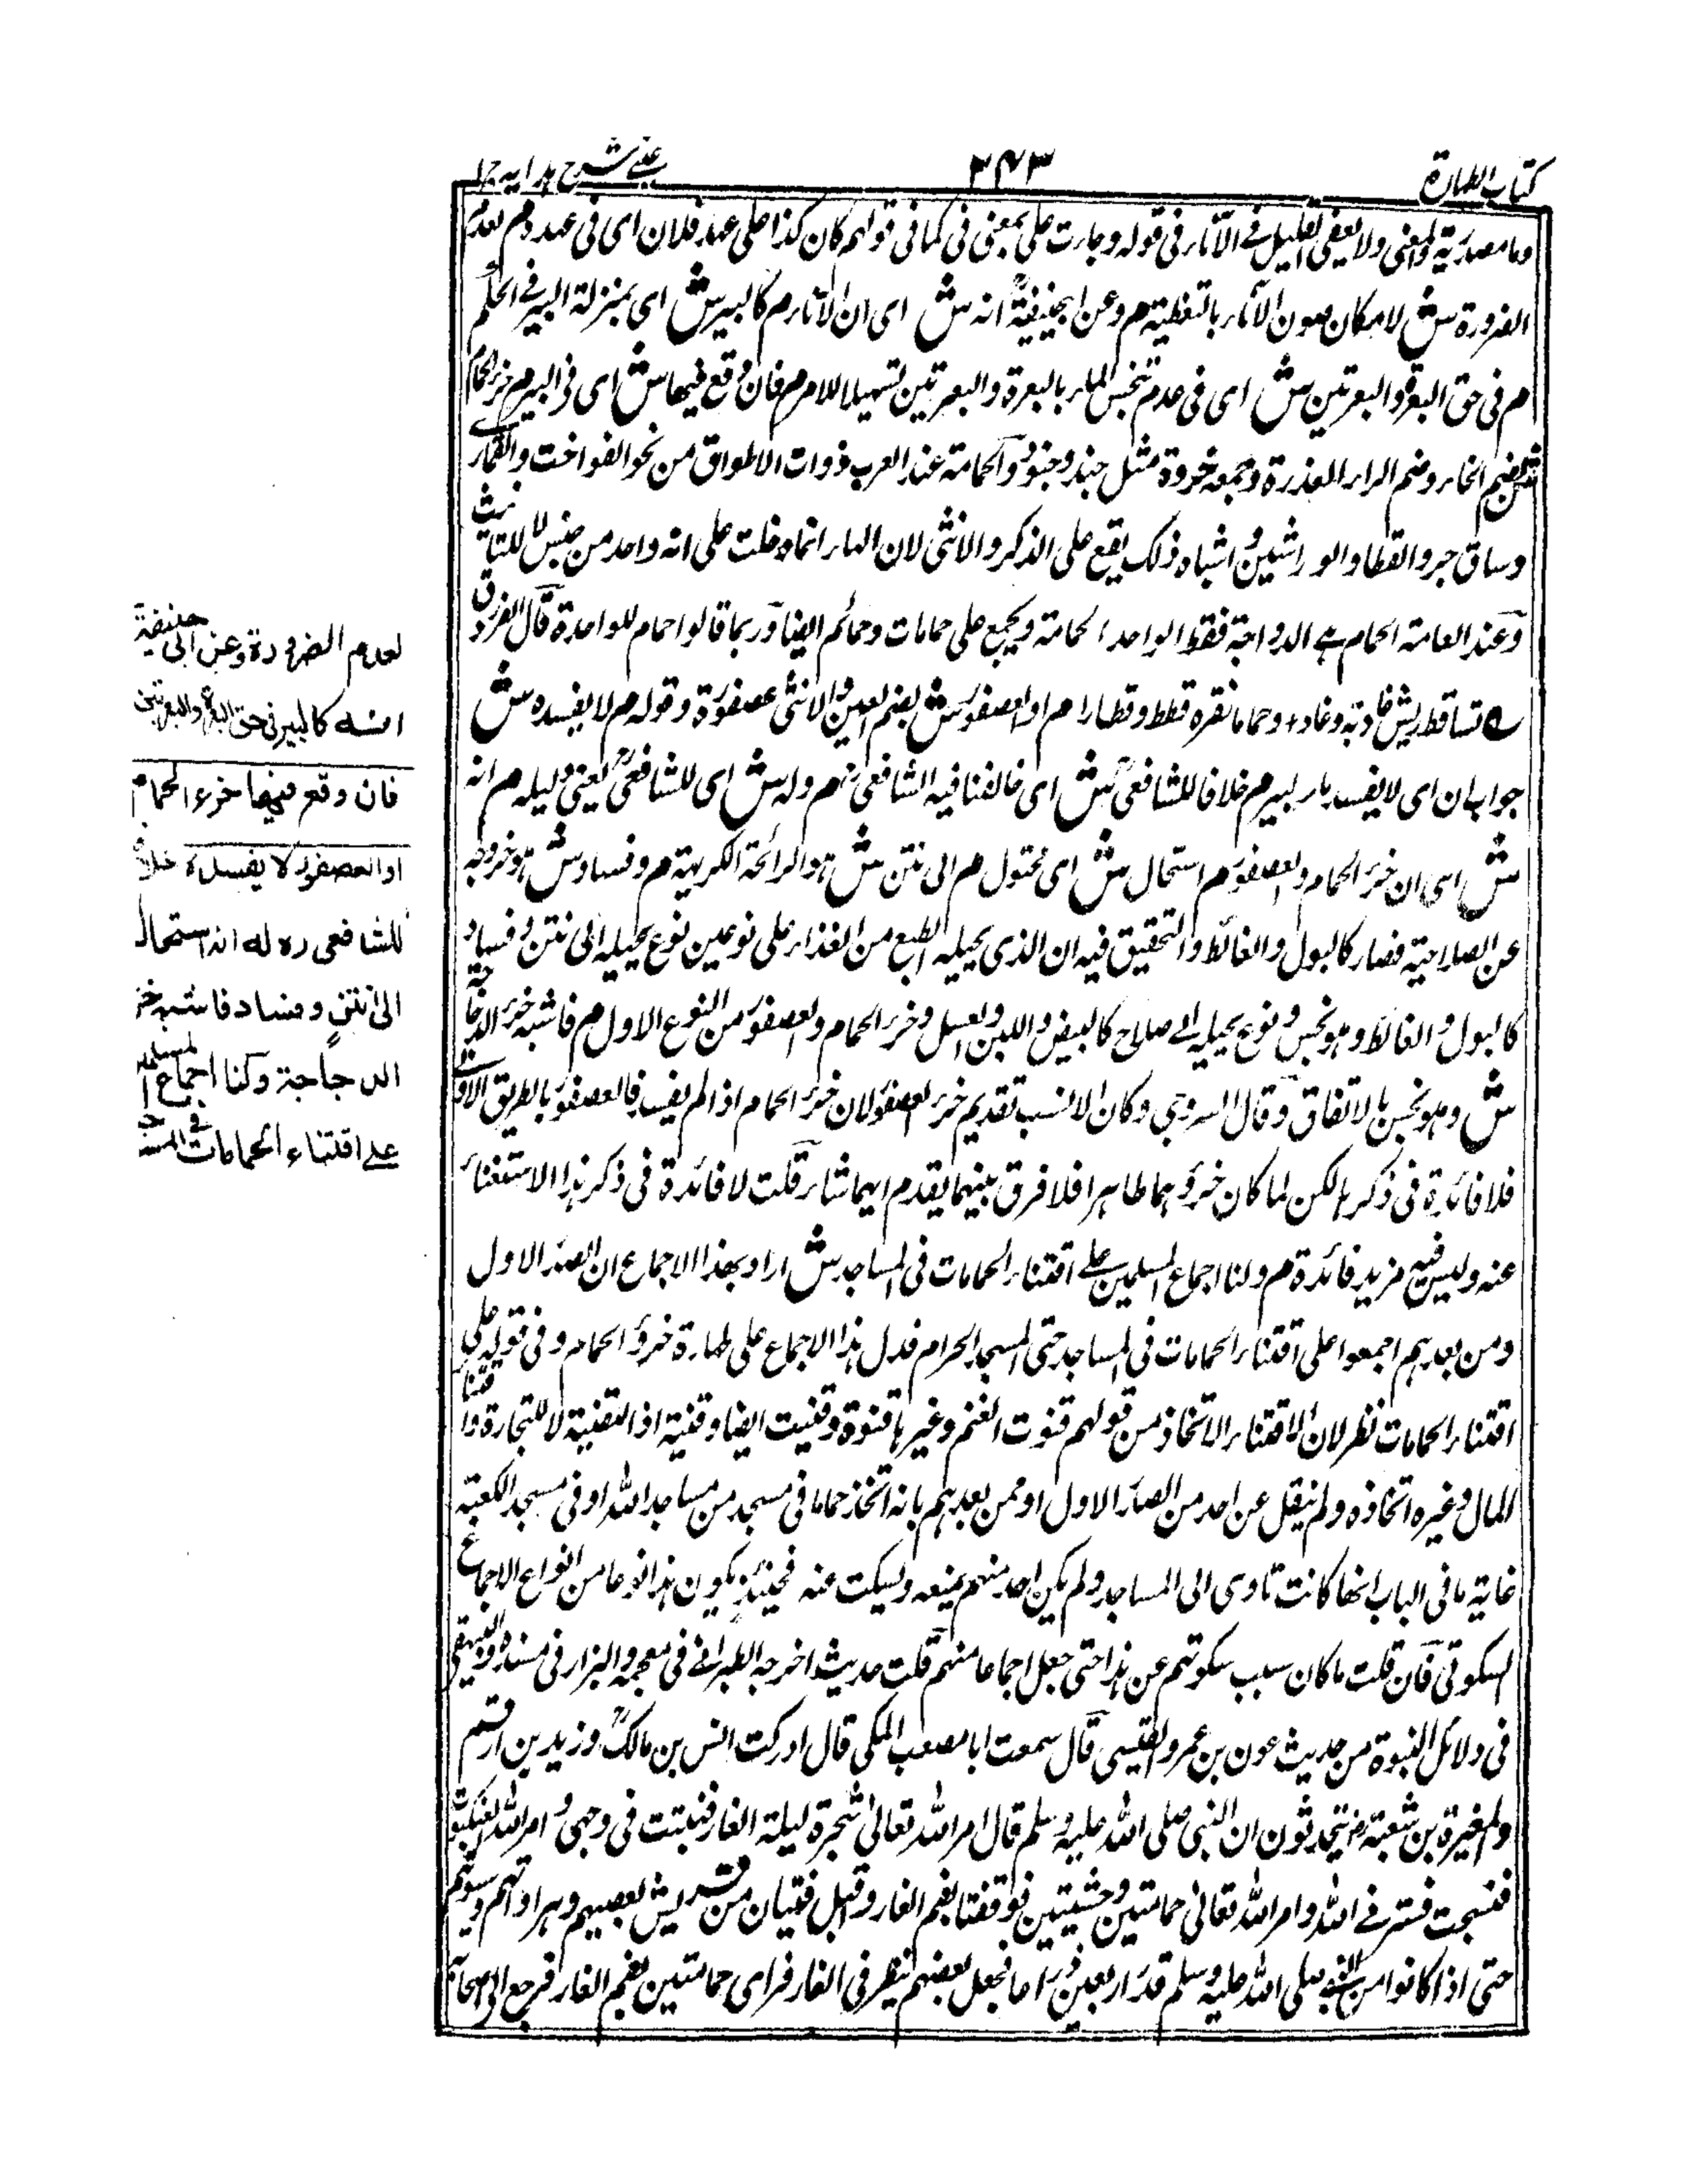 كتاب الطهارة
٣٤٣
عينى شرح هدايه ج ا
وما مصدرية والمعنى ولا يعفى القليل فے الآنار فى قوله وجارت على بمعنى فى كما فى قولهم كان كذا على عهد فلان اى فى عهده م لعدم
الضرورة ش لامكان صون الآنار بالتغطية م وعن ابيحنيفةؒ انه ش اى ان الآنار م كالبير ش اى بمنزلة البير فے الحكم
م فى حق البعرة والبعرتين ش اى فى عدم تنجس المار بالبعرة والبعرتين تسهيلا للامر م فان وقع فيها ش اى فى البير م خرء الحمام
ش بضم الخار وضم الرار العذرة وجمعه خروة مثل جند وجنود والحمامة عند العرب ذوات الاطواق من نحو الفواخت والقمارے
وساق حر والقطا والوراشين واشباه ذلك يقع على الذكر والانثى لان الهار انما دخلت على انه واحد من جنس لا للتانيث
وعند العامة الحمام ہے الدواجة فقط الواحد الحمامة ويجمع على حمامات وحمائم ايضا وربما قالوا حمام للواحدة قال الفرزدق
ے تساقط ريش غادية وغاد + وحماما نقرة قطط وقطارا م او العصفور ش بضم العين والانثى عصفورة وقوله م لا يفسده ش
جواب ان اى لا يفسد مار البير م خلافا للشافعىؒ ش اى خالفنا فيه الشافعىؒ م وله ش اى للشافعىؒ يعنى دليله م انه
ش اى ان خرء الحمام والعصفور م استحال ش اى تحول م الى نتن ش هو الرائحة الكريهة م وفساد ش هو خروجه
عن الصلاحية فصار كالبول والغائط والتحقيق فيه ان الذى يحيله الطبع من الغذار على نوعين نوع يحيله الى نتن وفساد
كالبول والغائط وهو نجس ونوع يحيله الے صلاح كالبيض واللبن والعسل وخرء الحمام والعصفور من النوع الاول م فاشبه خرء الدجاجة
ش وهو نجس بالاتفاق وقال السروجى وكان الانسب تقديم خرء العصفور لان خرء الحمام اذا لم يفسد فالعصفور بالطريق الاولى
فلا فائدة فى ذكرها لكن لما كان خرؤهما طاهرا فلا فرق بينهما يقدم ايهما شار قلت لا فائدة فى ذكر هذا الاستغناء
عنه وليس فيه مزيد فائدة م ولنا اجماع المسلمين علے اقتنار الحمامات فى المساجد ش اراد بهذا الاجماع ان الصدر الاول
ومن بعدهم اجمعوا على اقتنار الحمامات فى المساجد حتى المسجد الحرام فدل هذا الاجماع على طهارة خرؤ الحمام وفى قوله على
اقتنار الحمامات نظر لان الاقتنار الاتخاذ من قولهم قنوت الغنم وغيرها قنوة وقنيت ايضا وقنية اذا اقتنية لا للتجارة واقتنا
المال وغيره اتخاذه ولم ينقل عن احد من الصدر الاول او ممن بعدهم بانه اتخذ حماما فى مسجد من مساجد الله او فى مسجد الكعبة
غاية ما فى الباب انها كانت تاوى الى المساجد ولم يكن احد منهم يمنعه ويسكت عنه فحينئذ يكون هذا نوعا من انواع الاجماع
السكوتى فان قلت ما كان سبب سكوتهم عن هذا حتى جعل اجماعا منهم قلت حديث اخرجه الطبرانے فى معجمه والبزار فى مسنده والبيهقى
فى دلائل النبوة من حديث عون بن عمرو القيسى قال سمعت ابا مصعب المكى قال ادركت انس بن مالكؓ وزيد بن ارقم
والمغيرة بن شعبةؓ يتحدثون ان النبى صلى الله عليه وسلم قال امر الله تعالىٰ شجرة ليلة الغار فنبتت فى وجهى وامر الله العنكبوت
فنسجت فسترنے الله وامر الله تعالىٰ حمامتين وحشيتين فوقفتا بفم الغار وقبل فتيان من قريش بعصيهم وهراواتهم وسيوفهم
حتى اذا كانوا من النبے صلى الله عليه وسلم قدر اربعين ذراعا فجعل بعضهم ينظر فى الغار فراى حمامتين بفم الغار فرجع الى اصحابه
لعدم الضرورة وعن ابى حنيفة
انه كالبير فى حق البعرة والبعرتين
فان وقع فيها خرء الحمام
او العصفور لا يفسده خلافا
للشافعى ره له انه استحال
الىٰ نتنٍ وفساد فاشبه خرء
الدجاجة ولنا اجماع المسلمين
علے اقتناء الحمامات فى المساجد